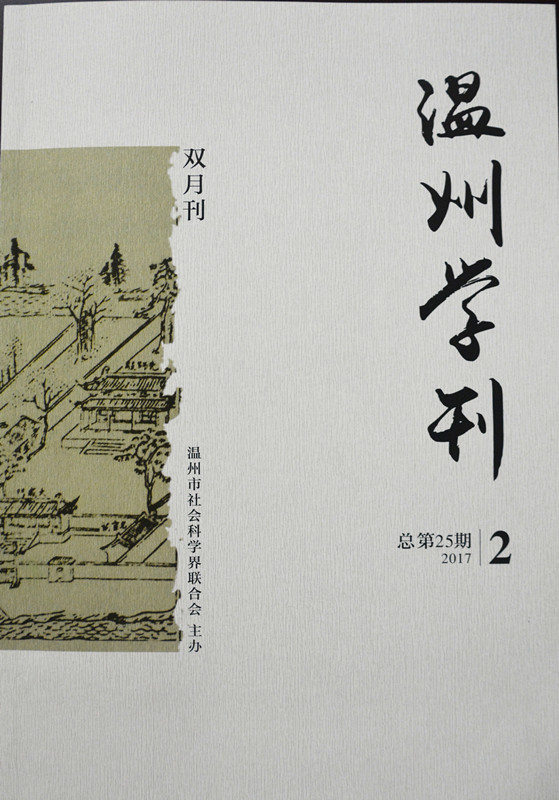 温州学刊
双月刊
温州市社会科学界联合会 主办
总第25期
2017
2